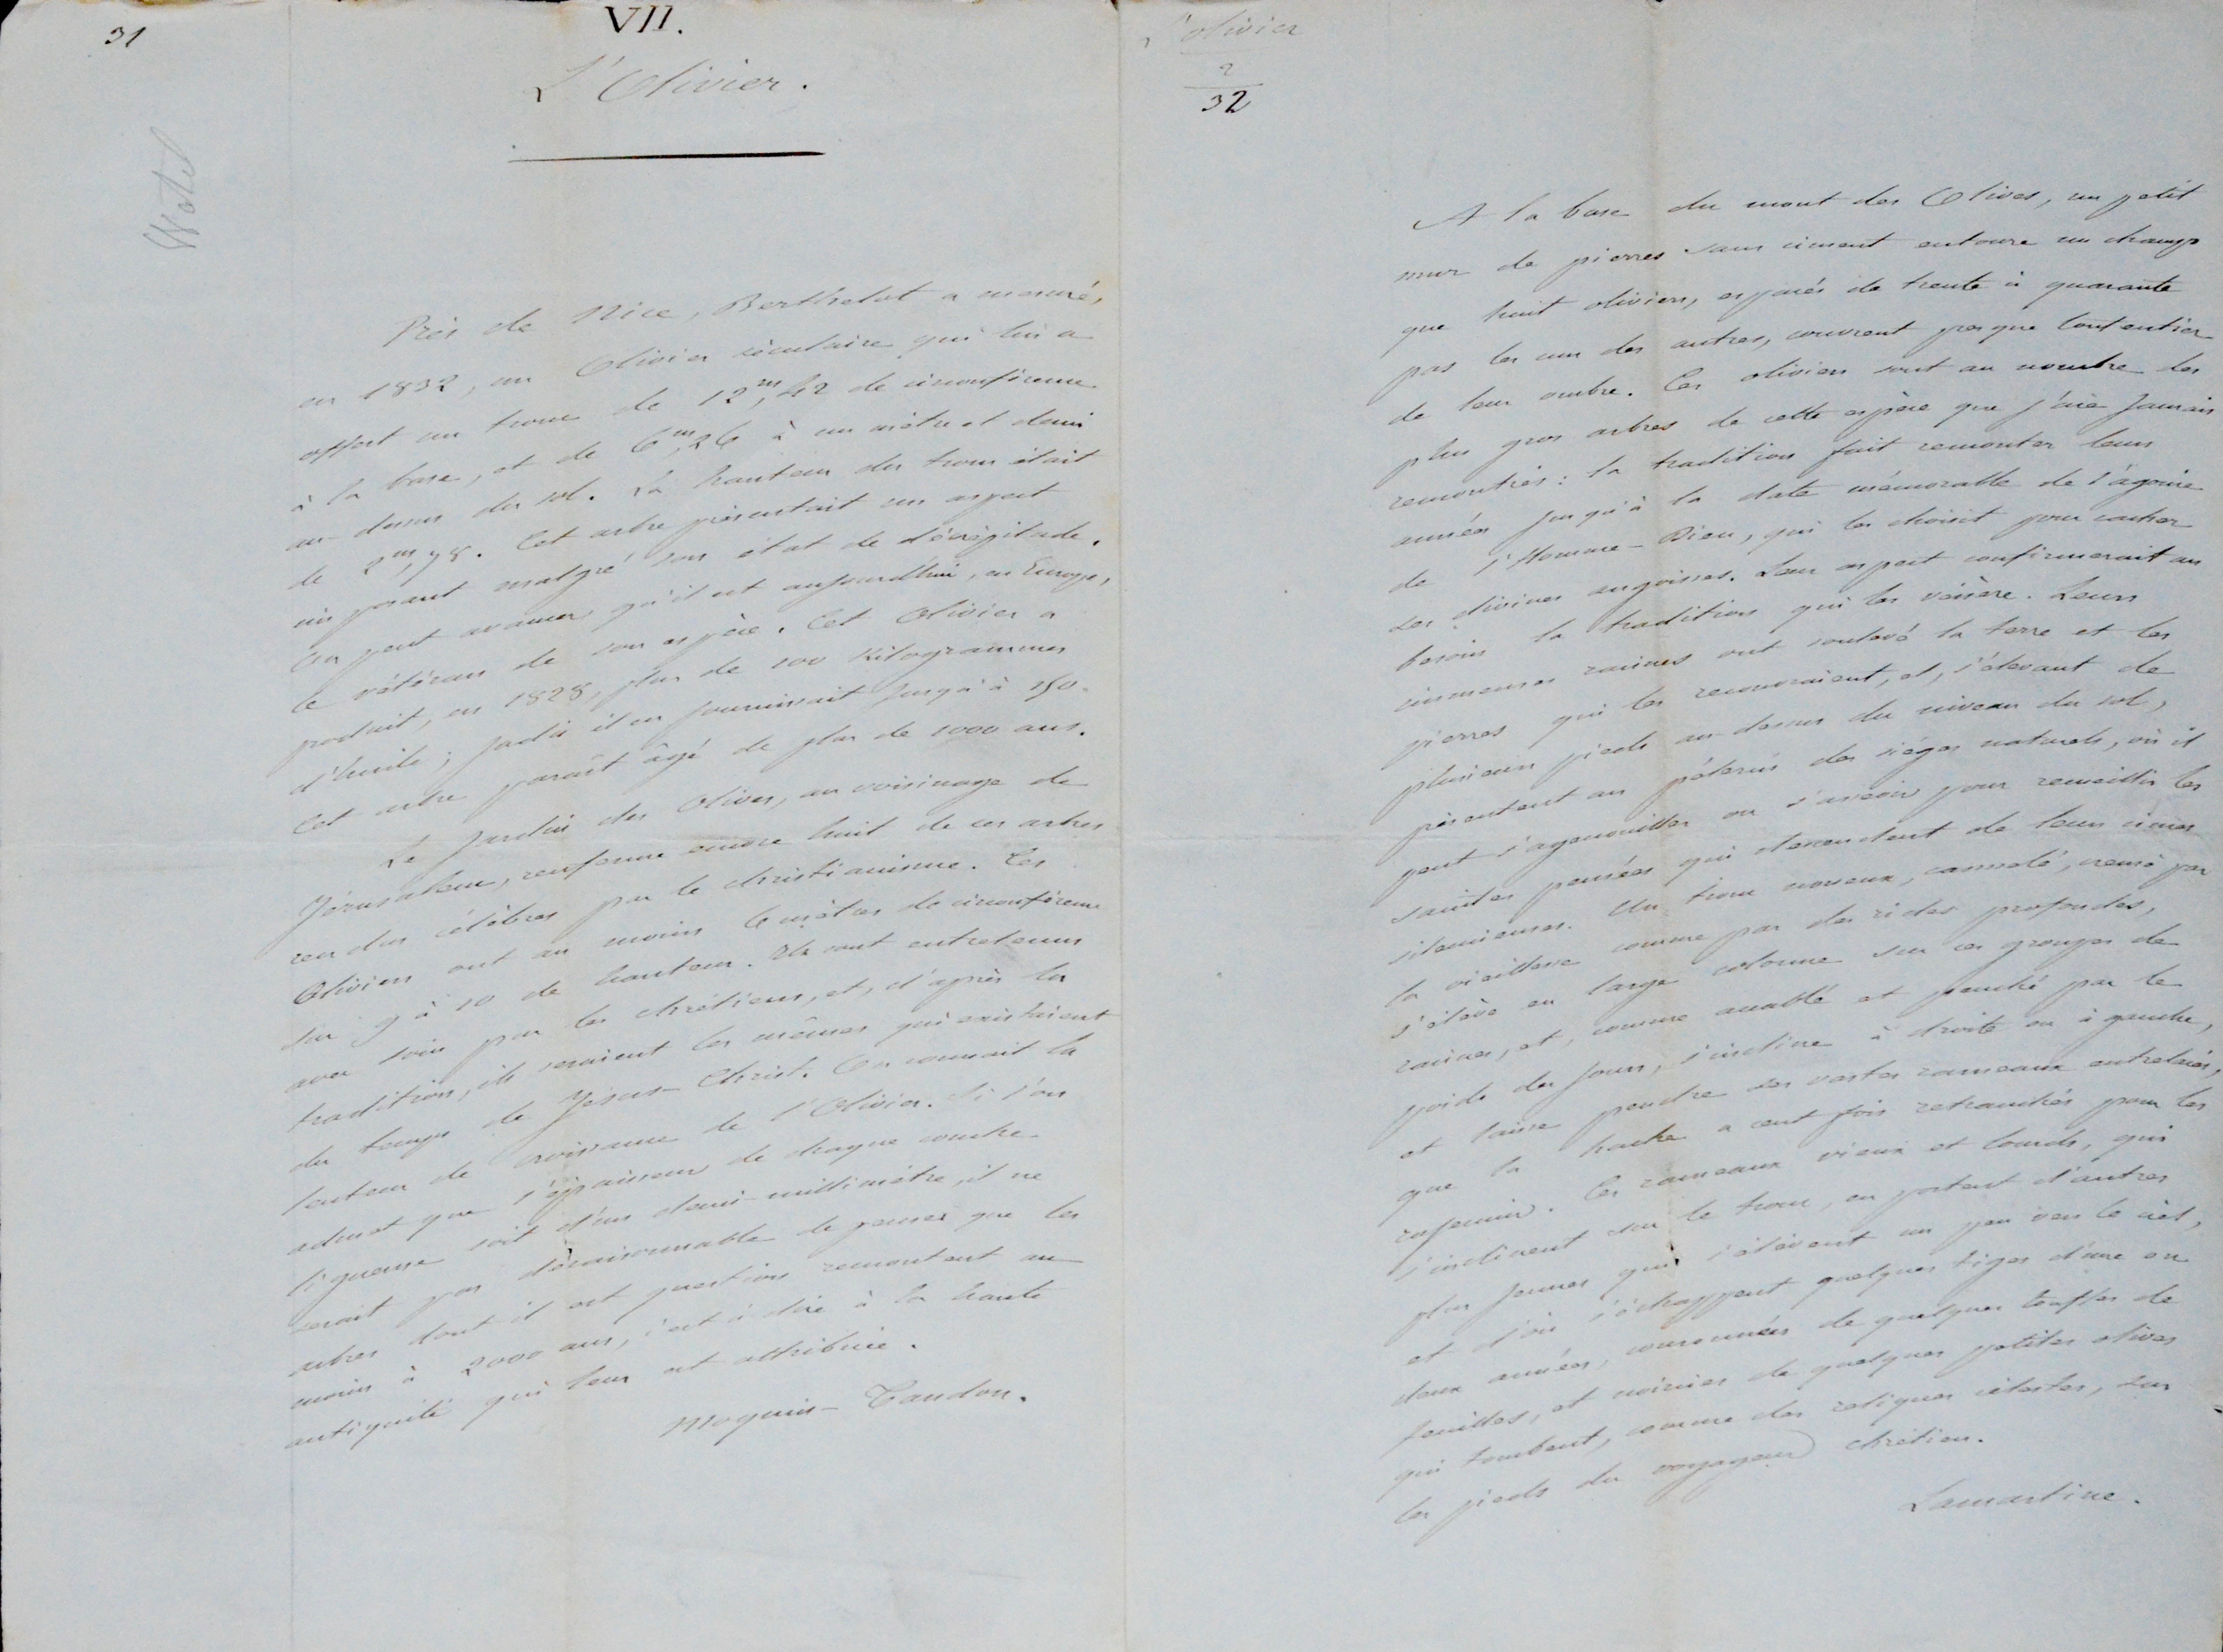 31
VII.
L'Olivier.
Près de Nice, Berthelot a mesuré,
en 1832, un Olivier séculaire qui lui a
offert un tronc de 12m,42 de circonférence
à la base, et de 6m,26 à un mètre et demi
au-dessus du sol. La hauteur du tronc était
de 2m,78. Cet arbre présentait un aspect
imposant malgré son état de décrépitude.
On peut avancer qu'il est aujourd'hui, en Europe,
le vétéran de son espèce. Cet Olivier a
produit, en 1828, plus de 100 Kilogrammes
d'huile ; jadis il en fournissait jusqu'à 150.
Cet arbre paraît âgé de plus de 1000 ans.
Le Jardin des Olives, au voisinage de
Jérusalem, renferme encore huit de ces arbres
rendus célèbres par le christianisme. Ces
Oliviers ont au moins 6 mètres de circonférence
sur 9 à 10 de hauteur. Ils sont entretenus
avec soin par les chrétiens, et, d'après la
tradition, ils seraient les mêmes qui existaient
du temps de Jésus-Christ. On connait la
lenteur de croissance de l'Olivier. Si l'on
admet que l'épaisseur de chaque couche
ligneuse soit d'un demi-millimètre, il ne
serait pas déraisonnable de penser que les
arbres dont il est question remontent au
moins à 2000 ans, c'est à dire à la haute
antiquité qui leur est attribuée.
Moquin-Tandon.
L'olivier
2
32
A la base du mont des Olives, un petit
mur de pierres sans ciment entoure un champ
que huit oliviers, espacés de trente à quarante
pas les uns des autres, couvrent presque tout entier
de leur ombre. Ces oliviers sont au nombre des
plus gros arbres de cette espèce que j'aie jamais
rencontrés : la tradition fait remonter leurs
années jusqu'à la date mémorable de l'agonie
de l'Homme-Dieu, qui les choisit pour cacher
ses divines angoisses. Leur aspect confirmerait au
besoin la tradition qui les vénère. Leurs
immenses racines ont soulevé la terre et les
pierres qui les recouvraient, et, s'élevant de
plusieurs pieds au-dessus du niveau du sol,
présentent au pélerin des sièges naturels, où il
peut s'agenouiller ou s'asseoir pour recueillir les
saintes pensées qui descendent de leurs cimes
silencieuses. Un tronc noueux, cannelé, creusé par
la vieillesse comme par des rides profondes,
s'élève en large colonne sur ces groupes de
racines, et, comme accablé et penché par le
poids des jours, s'incline à droite ou à gauche,
et laisse pendre ses vastes rameaux entrelacés,
que la hache a cent fois retranchés pour les
rajeunir. Ces rameaux vieux et lourds, qui
s'inclinent sur le tronc, en portent d'autres
plus jeunes qui s'élèvent un peu vers le ciel,
et d'où s'échappent quelques tiges d'une ou
deux années, couronnées de quelques touffes de
feuilles, et noircies de quelques petites olives
qui tombent, comme des reliques célestes, sur
les pieds du voyageur chrétien.
Lamartine.